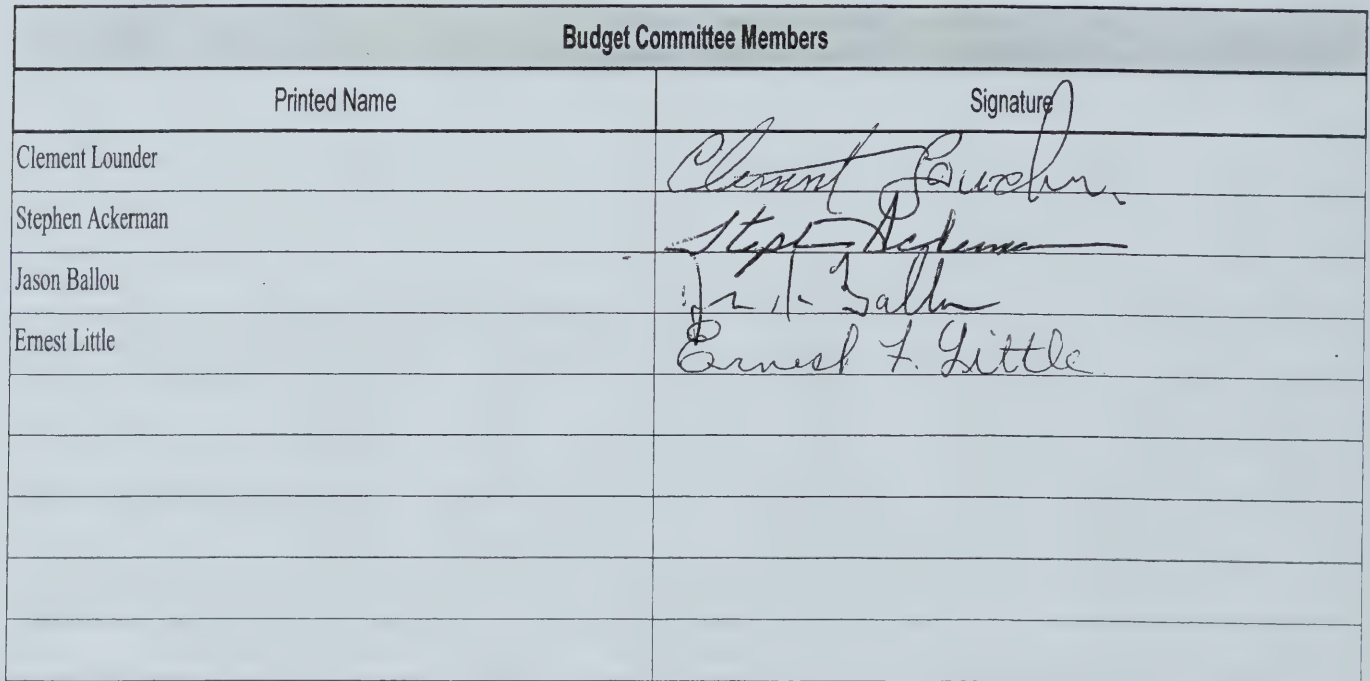 Budget Committee Members
Printed Name Signature
Clement Lounder Clement Lounder
Stephen Ackerman Stephen Ackerman
Jason Ballou Ballou
Ernest Little Ernest F. Little